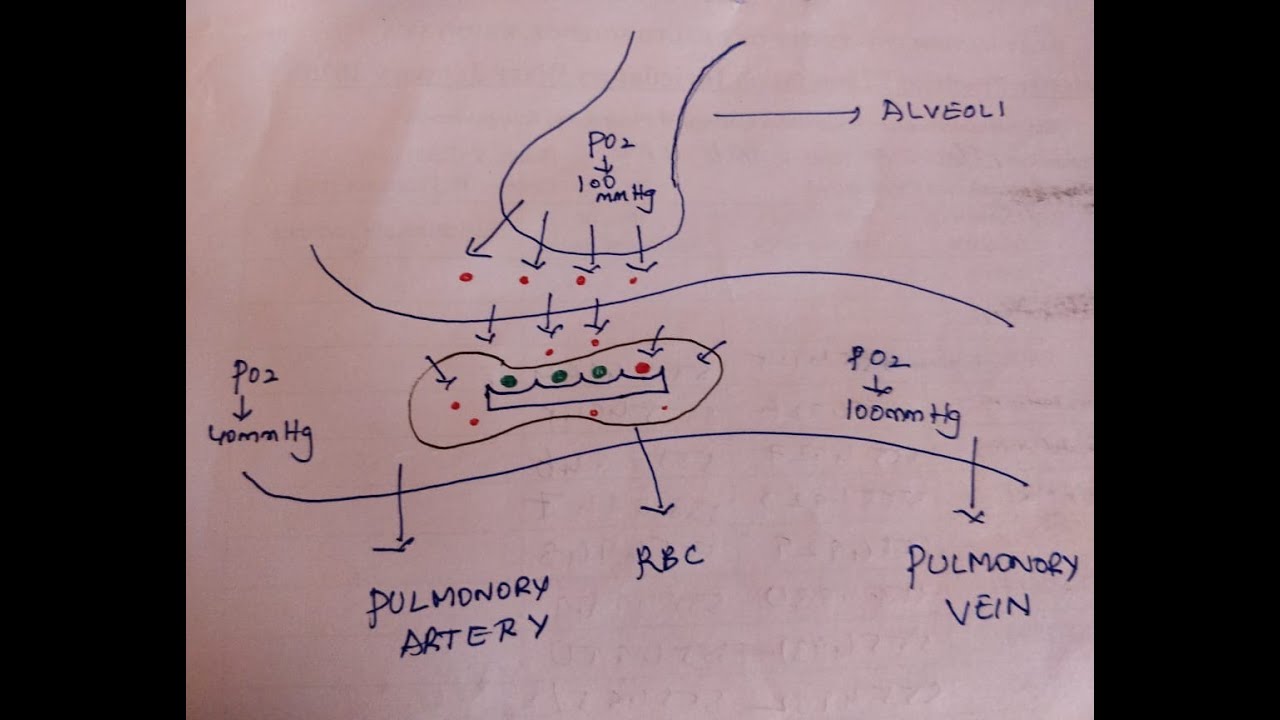 ALVEOLI
PO2
100
mmHg
PO2
40mmHg
PO2
100mmHg
RBC
PULMONORY
ARTERY
PULMONORY
VEIN